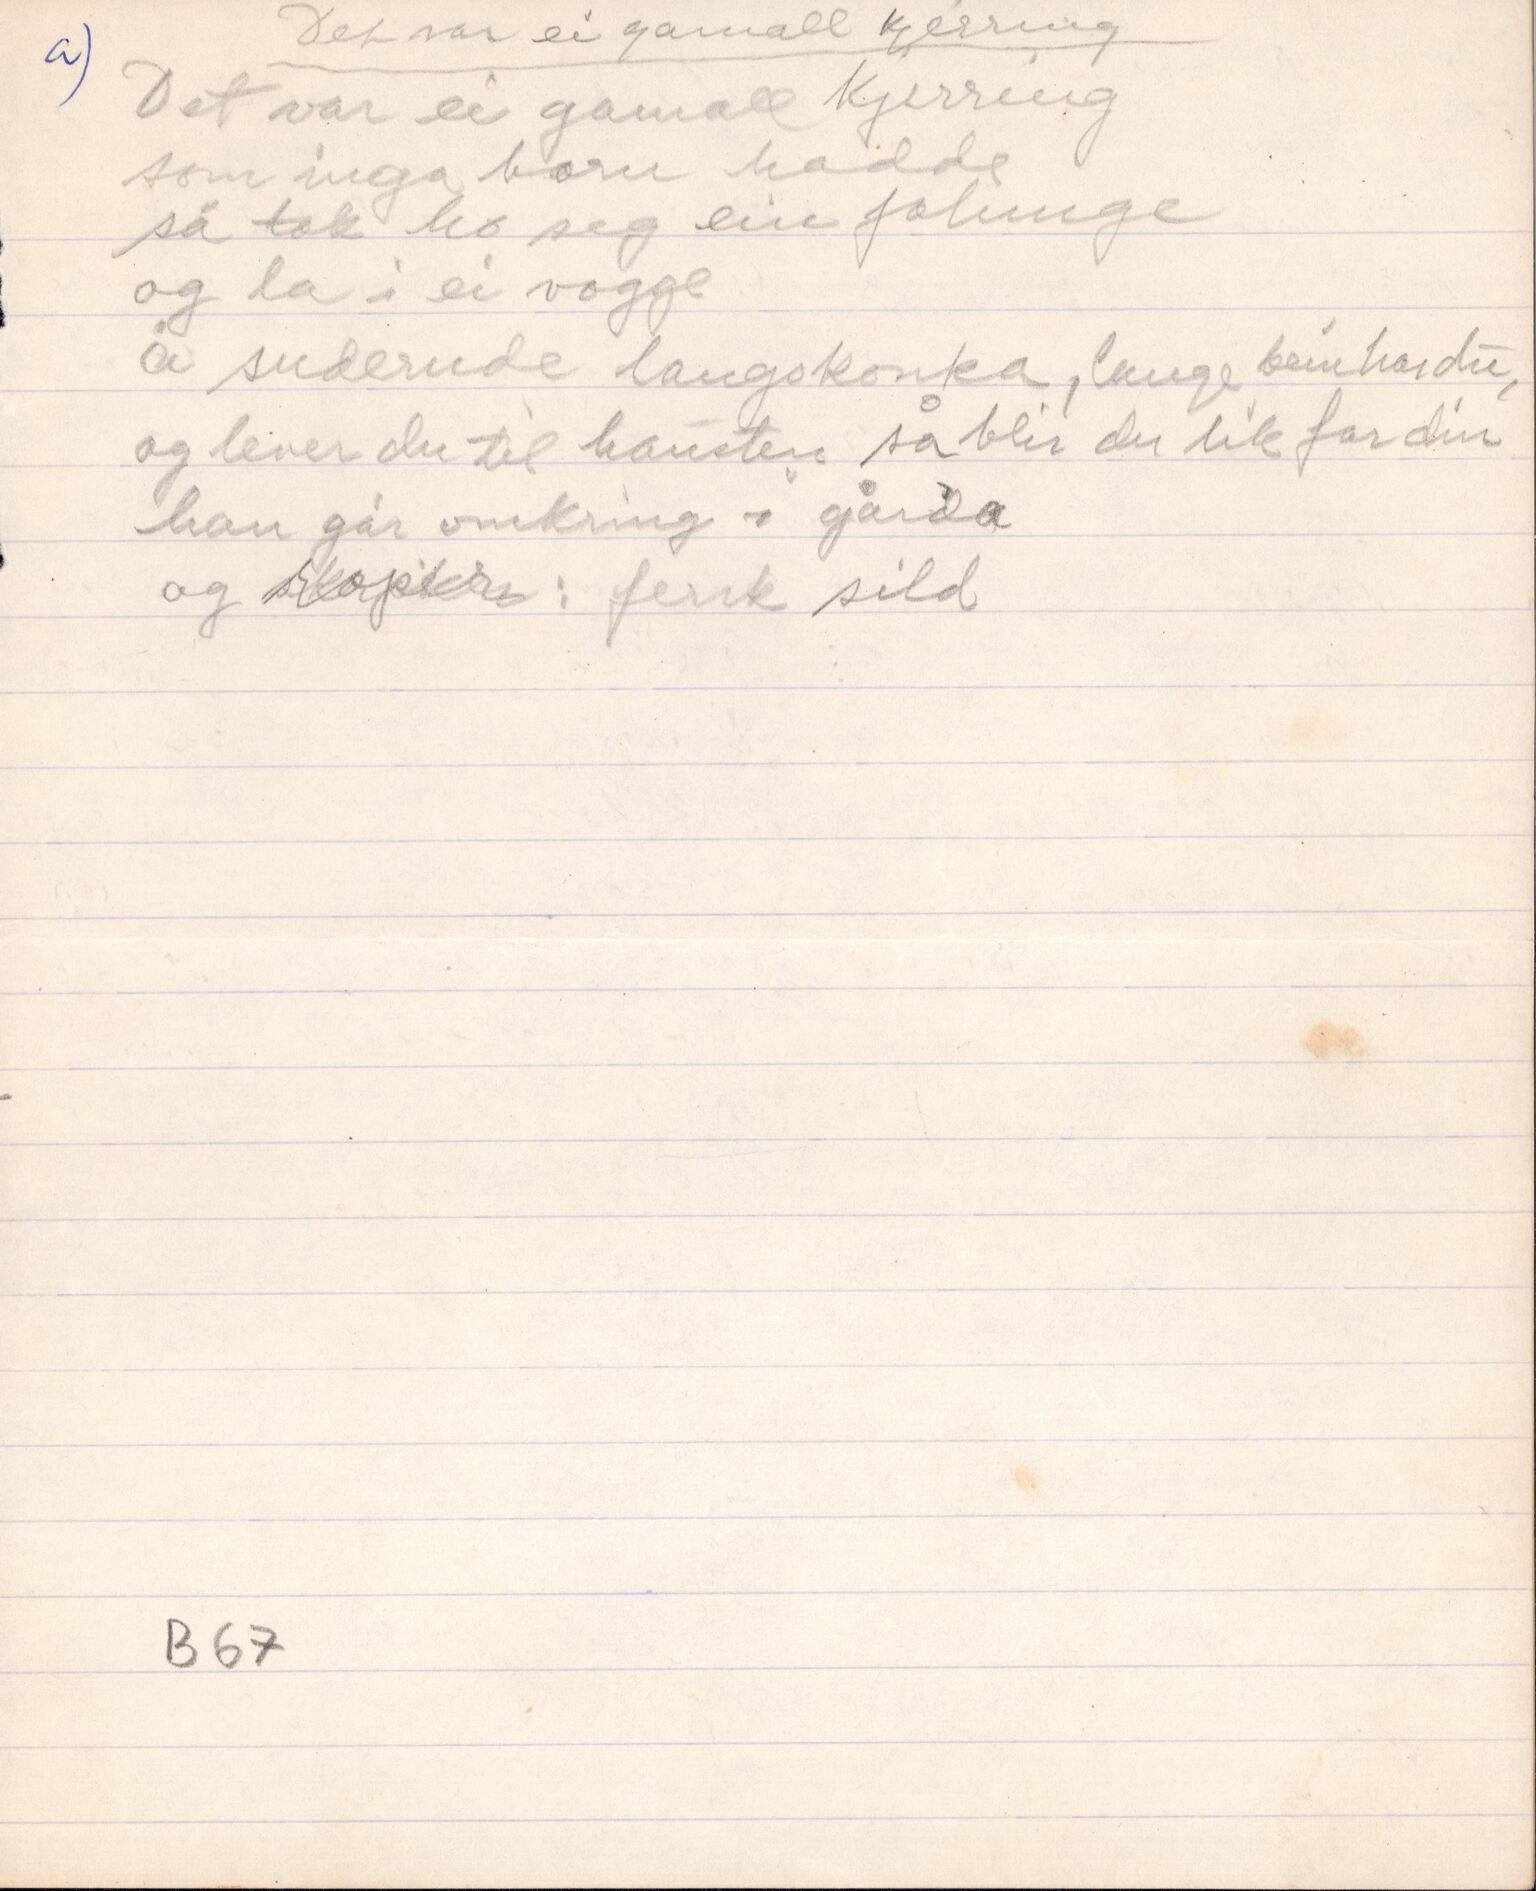 Det var ei gamall kjerring
a)
Det var ei gamall kjerring
som inga born hadde
så tok ho seg ein folunge
og la i ei vogge
Å suderude langskonka, lange bein har du,
og lever du til hausten så blir du lik far din
han går omkring i gårda
og i fersk sild
B 67